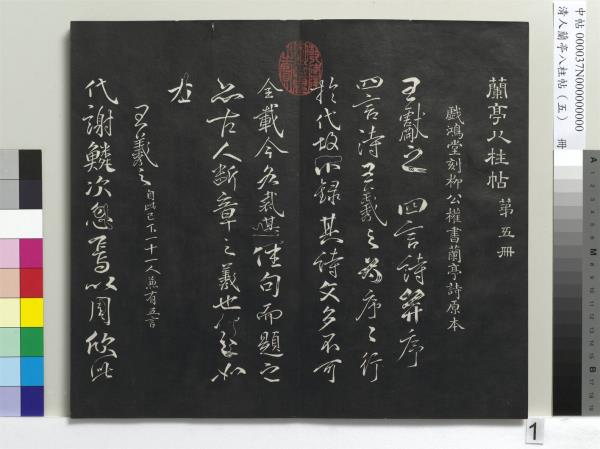 中帖 000037N000000000
清人蘭亭八柱帖（五） 冊
蘭亭八柱帖 第五冊
戲鴻堂刻柳公權書蘭亭詩原本
王獻之四言詩并序
四言詩王羲之爲序序行
於代故不錄其詩文多不可
全載今各裁其佳句而題之
亦古人斷章之義也
王羲之 自此已下二十一人兼有五言
代謝鱗次忽焉以周欣此
1